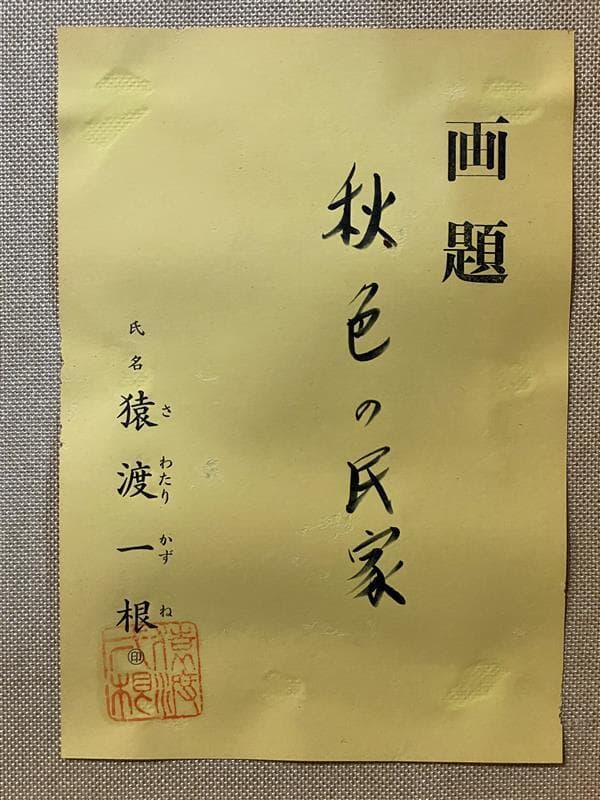 画題
秋色の民家
氏名 猿渡一根 ㊞
さ わたり かず ね
猿渡
一根